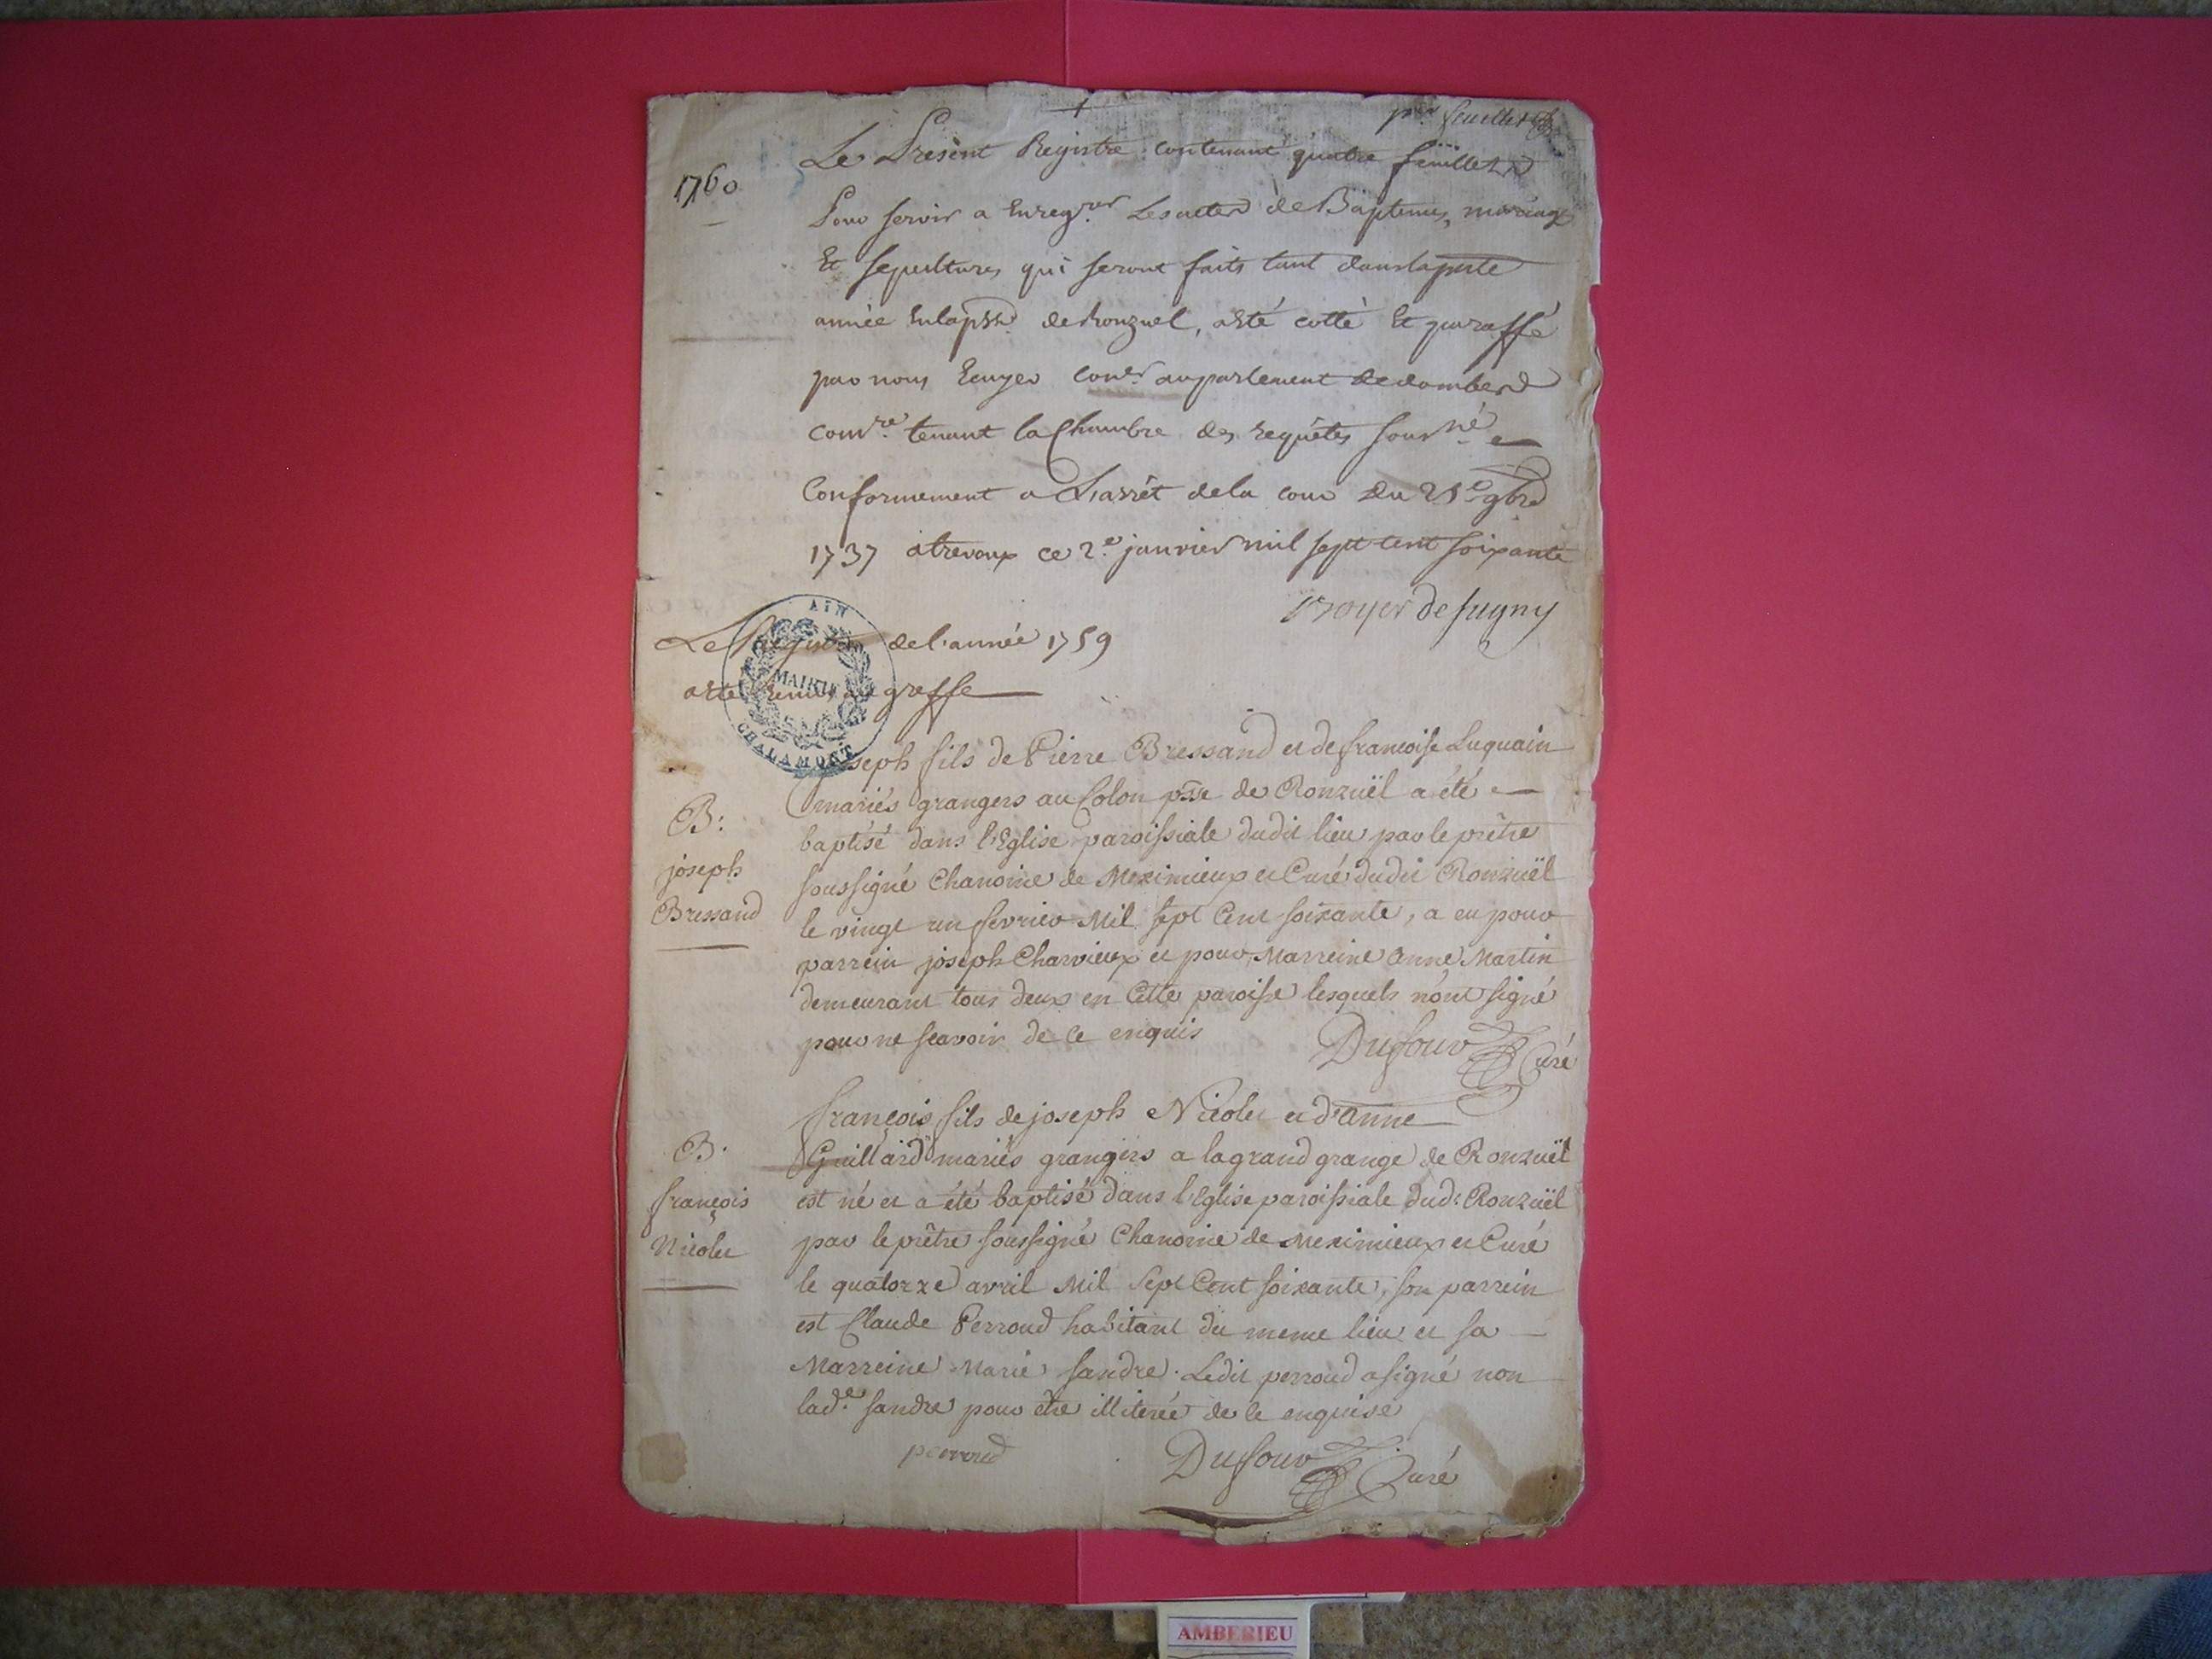 per feuillet
1760
Le Present Registre contenant quatre feüillets
Pour servir a Enregrer Les actes de Baptemes, mariages
Et sepultures qui seront faits tant dans la pnte
année En la psse de Ronzuel, a Eté cotté Et paraffé
par nous Ecuyer Coner au parlement de dombes
Comre tenant la Chambre des requêtes soussné
Conformement a L'arrêt de la cour Du 9bre
1737 a trevoux ce 2e janvier mil sept cent soixante
Le Registre de l'année 1759
a Eté remis au greffe
AIN
MAIRIE
CHALAMONT
Joseph fils de Pierre Bressand et de francoise Luquain
mariés grangers au Colon psse de Ronzuël a été
B:
joseph
Bressand
baptisé dans l'Eglise paroissiale dudit lieu par le prêtre
soussigné Chanoine de Meximieux et Curé dudit Ronzuël
le vingt un fevrier Mil sept Cent soixante, a eu pour
parrein joseph Charvieux et pour Marreine Anne Martin
demeurant tous deux en Cette paroisse lesquels n'ont signé
pour ne scavoir de ce enquis
Dufour Curé
françois fils de joseph Nicolet et d'anne
B.
françois
Nicolet
Guillard mariés grangers a la grand grange de Ronzuël
est né et a été baptisé dans l'Eglise paroissiale dudt Ronzuël
par le prêtre soussigné Chanoine de Meximieux et Curé
le quatorze avril Mil Sept Cent soixante, son parrein
est Claude Perroud habitant du meme lieu et sa
Marreine Marie sandre. Ledit perroud a signé non
lade sandre pour etre illiterée de ce enquise
perroud
Dufour Curé
AMBERIEU